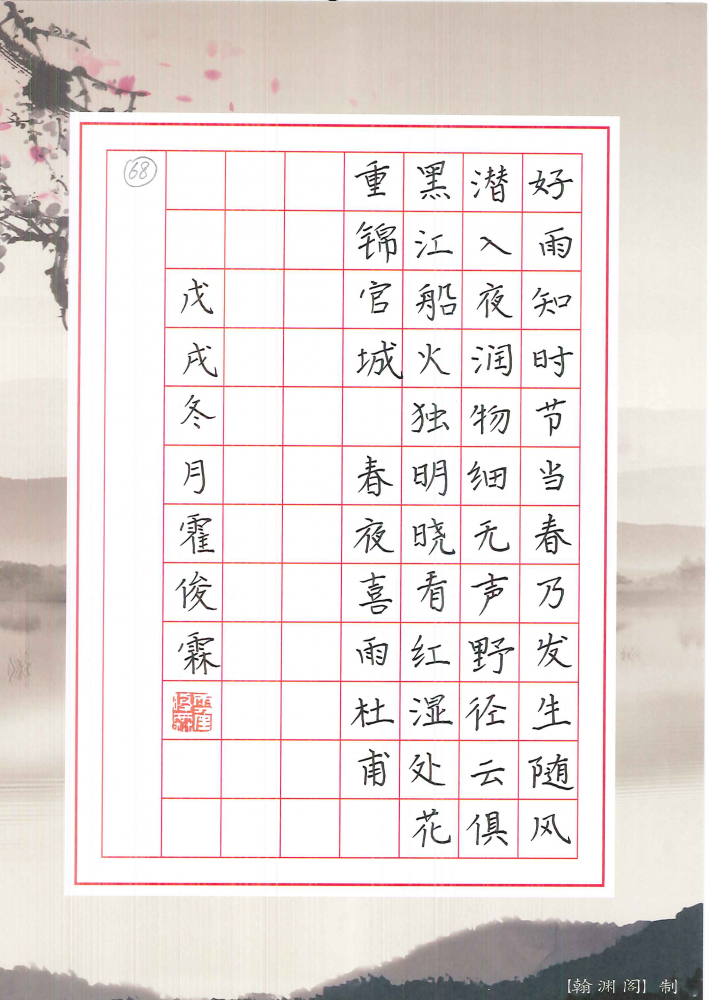 好雨知时节当春乃发生随风
潜入夜润物细无声野径云俱
黑江船火独明晓看红湿处花
重锦官城 春夜喜雨杜甫
戊戌冬月霍俊霖
霍俊霖
68
【翰渊阁】制